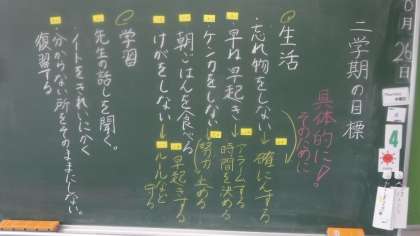 二学期の目標
具体的に!
そのために
生活
・忘れ物をしない→確にんする
・早ね早起き→アラームする
時間を決める
・ケンカをしない→
・朝ごはんを食べる→早起きする
・けがをしない→ルールなど
守る
学習
・先生の話しを聞く。
・ノートをきれいにかく
・分からない所をそのままにしない。
復習する
6月
日
4